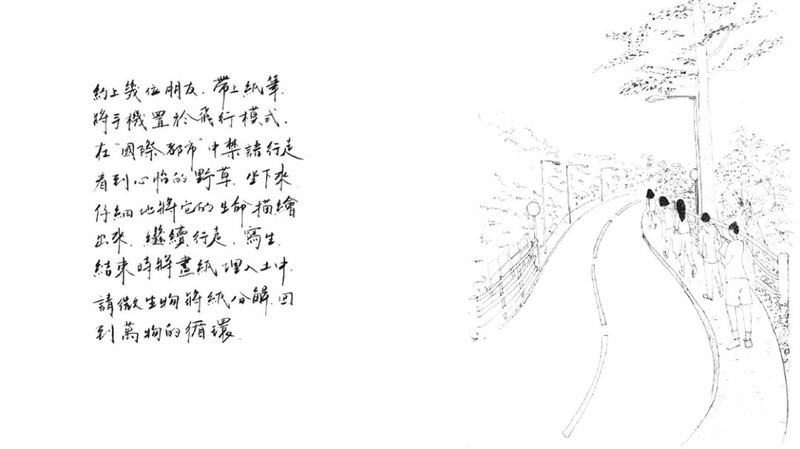 約上幾位朋友.帶上紙筆.
將手機置於飛行模式.
在"國際都市"中禁語行走
看到心怡的野草.坐下來
仔細地將它的生命描繪
出來.繼續行走.寫生.
結束時將畫紙埋入土中.
請微生物將紙分解.回
到萬物的循環.